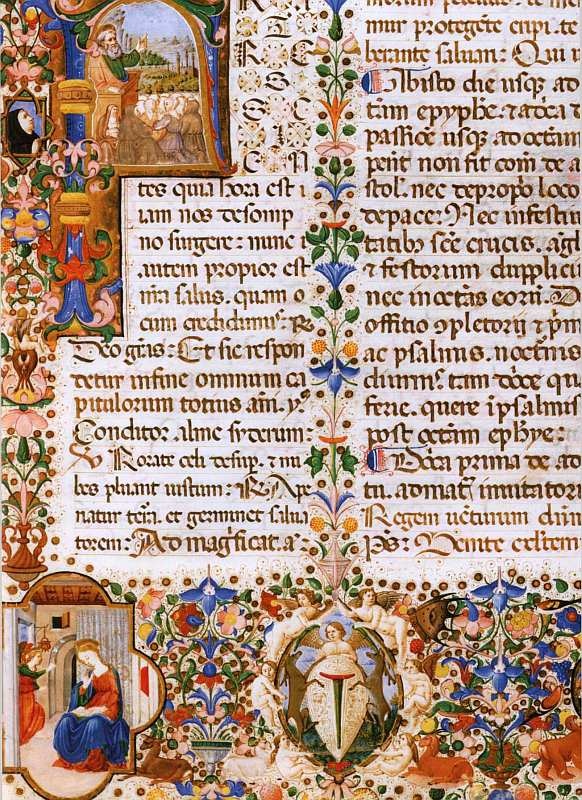 FRATRES
SCIEN
tes quia hora est i
iam nos de somp
no surgere: nunc i
autem propior est
nra salus. quam o
cum credidimus. R
Deo grās: Et sic respon
detur in fine omnium ca
pitulorum totius ani. ys
Conditor alme syderum
V Rorate celi desup. et nu
bes pluant iustum: R Ape
riatur terra. et germinet salua
torem: Ad magficat. a
mur protegēte eripi. te
berante saluari: Qui ui
Ab isto die usq ad
tam epyphe: et a dca
passiōe usq ad octam
pent non fit com de a
stol. nec de propo loco
de pace: Nec in festiui
tatib scē crucis. agi
et festorum dupplici
nec in octās eorum. D
offitio opletorii et prī
ac psalmis. nocturnis
diurnis. tam dōce qu
ferie. quere i psalmis
post octam ephye:
Dōca prima de ad
tu. ad mat inuitatori
Regem uēturum dm
ps: Uenite celi tem